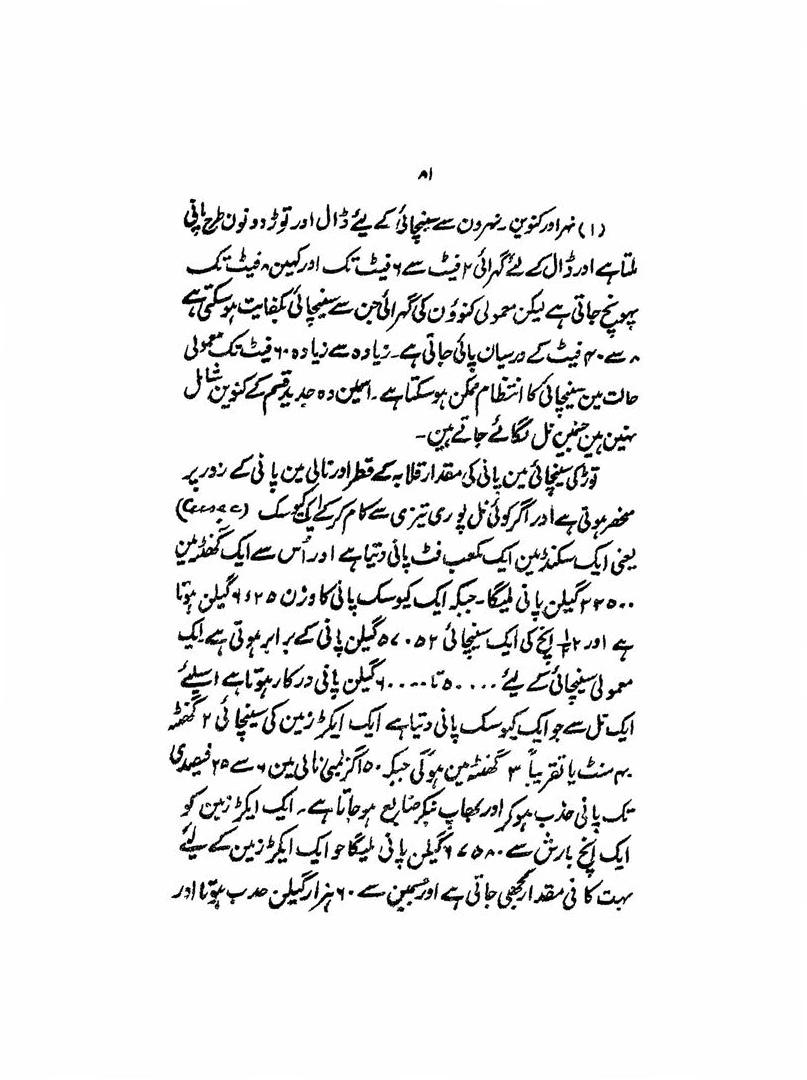 ۸۱
(۱) نہر اور کنوین ۔ نہرون سے سینچائی کے لئے ڈال اور توڑ دونون طرح پانی
ملتا ہے اور ڈال کے لئے گہرائی ۲ فیٹ سے ۶ فیٹ تک اور کہین ۸ فیٹ تک
پہونچ جاتی ہے لیکن معمولی کنوؤن کی گہرائی جن سے سینچائی بکفایت ہو سکتی ہے
۸ سے ۴۰ فیٹ کے درمیان پائی جاتی ہے ۔ زیادہ سے زیادہ ۶۰ فیٹ تک معمولی
حالت مین سینچائی کا انتظام ممکن ہو سکتا ہے ۔ اسمین وہ جدید قسم کے کنوین شامل
نہین ہین جنمین نل لگائے جاتے ہین ۔
توڑ کی سینچائی مین پانی کی مقدار قلابہ کے قطر اور نالی مین پانی کے زور پر
منحصر ہوتی ہے اور اگر کوئی نل پوری تیزی سے کام کرکے ایک کیوسک (Cusec)
یعنی ایک سکنڈ مین ایک مکعب فٹ پانی دیتا ہے اور اُس سے ایک گھنٹہ مین
۲۲۵۰۰ گیلن پانی ملیگا ۔ جبکہ ایک کیوسک پانی کا وزن ۶٫۲۵ گیلن ہوتا
ہے اور ۲½ اِنچ کی ایک سینچائی ۵۷۰۵۲ گیلن پانی کے برابر ہوتی ہے ایک
معمولی سینچائی کے لیے ۵۰۰۰۰ تا ۶۰۰۰۰ گیلن پانی درکار ہوتا ہے اسلئے
ایک نل سے جو ایک کیوسک پانی دیتا ہے ایک ایکڑ زمین کی سینچائی ۲ گھنٹہ
۴۰ منٹ یا تقریباً ۳ گھنٹہ مین ہوگی جبکہ ۵۰ اگز لمبی نالی مین ۶ سے ۲۵ فیصدی
تک پانی جذب ہوکر اور بھاپ بنکر ضایع ہو جاتا ہے ۔ ایک ایکڑ زمین کو
ایک اِنچ بارش سے ۶۷۵۸۰ گیلن پانی ملیگا جو ایک ایکڑ زمین کے لیے
بہت کافی مقدار سمجھی جاتی ہے اور جسمین سے ۶۰ ہزار گیلن جذب ہوتا اور